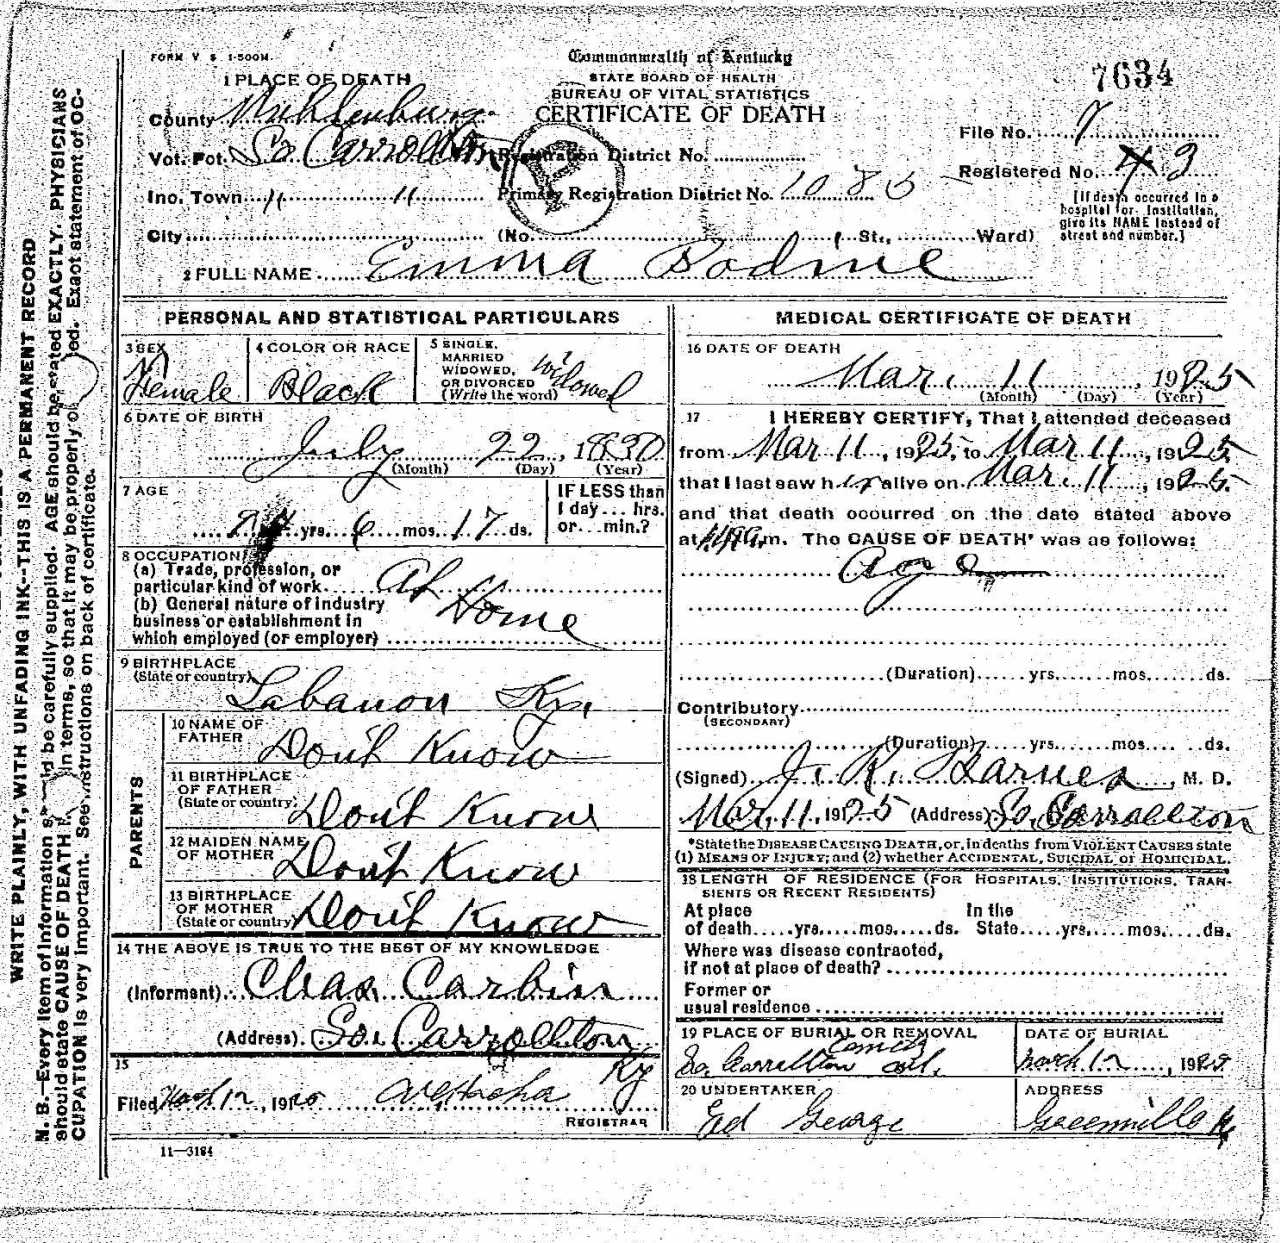 FORM V S 1-500M
Commonwealth of Kentucky
STATE BOARD OF HEALTH
BUREAU OF VITAL STATISTICS
CERTIFICATE OF DEATH
7634
1 PLACE OF DEATH
County Muhlenburg
Vot. Pct. So Carrollton
Registration District No.
File No. 7
Inc. Town " "
Primary Registration District No. 1085
Registered No. 43
[If death occurred in a hospital or institution, give its NAME instead of street and number.]
City (No. St., Ward)
2 FULL NAME Emma Bodine
PERSONAL AND STATISTICAL PARTICULARS
3 SEX
Female
4 COLOR OR RACE
Black
5 SINGLE,
MARRIED
WIDOWED,
OR DIVORCED
(Write the word)
Widowed
6 DATE OF BIRTH
July 22, 18
(Month) (Day) (Year)
7 AGE
yrs. 6 mos. 17 ds.
IF LESS than
1 day... hrs.
or...min.?
8 OCCUPATION
(a) Trade, profession, or
particular kind of work At Home
(b) General nature of industry
business or establishment in
which employed (or employer)
9 BIRTHPLACE
(State or country) Lebanon Ky.
PARENTS
10 NAME OF
FATHER Don't Know
11 BIRTHPLACE
OF FATHER
(State or country) Don't Know
12 MAIDEN NAME
OF MOTHER Don't Know
13 BIRTHPLACE
OF MOTHER
(State or country) Don't Know
14 THE ABOVE IS TRUE TO THE BEST OF MY KNOWLEDGE
(Informent) Chas Carbin
(Address) So. Carrollton
Ky
15
Filed March 12, 19
REGISTRAR
11—3184
MEDICAL CERTIFICATE OF DEATH
16 DATE OF DEATH
Mar. 11, 1925
(Month) (Day) (Year)
17 I HEREBY CERTIFY, That I attended deceased
from Mar 11, 1925, to Mar 11, 1925
that I last saw her alive on Mar. 11, 1925.
and that death occurred on the date stated above
at m. The CAUSE OF DEATH* was as follows:
Age
(Duration) yrs. mos. ds.
Contributory
(SECONDARY)
(Duration) yrs. mos. ds.
(Signed) J. K. Barnes, M. D.
Mar. 11, 1925 (Address) So. Carrollton
*State the DISEASE CAUSING DEATH, or, in deaths from VIOLENT CAUSES state
(1) MEANS OF INJURY; and (2) whether ACCIDENTAL, SUICIDAL or HOMICIDAL.
18 LENGTH OF RESIDENCE (FOR HOSPITALS, INSTITUTIONS, TRAN-
SIENTS OR RECENT RESIDENTS)
At place In the
of death yrs. mos. ds. State yrs. mos. ds.
Where was disease contracted,
if not at place of death?
Former or
usual residence
19 PLACE OF BURIAL OR REMOVAL
So. Carrollton
DATE OF BURIAL
March 12, 1925
20 UNDERTAKER
Ed George
ADDRESS
Greenville Ky
WRITE PLAINLY, WITH UNFADING INK--THIS IS A PERMANENT RECORD
N. B.—Every item of information should be carefully supplied. AGE should be stated EXACTLY. PHYSICIANS
should state CAUSE OF DEATH in terms, so that it may be properly. Exact statement of OC-
CUPATION is very important. See instructions on back of certificate.